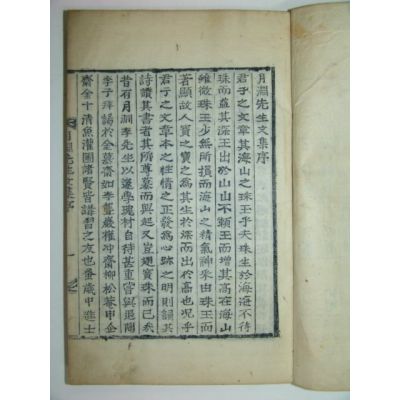 月澗先生文集序
君子之文章其海山之珠玉乎夫珠生於海海不待
珠而益其深玉出於山山不玉而增其高在海山
雖微珠玉少無所損而海山之精氣神采由珠玉而
著顯故人寶之其發於深而出於高也况乎
君子之文章本之性情之正發爲心跡之明則韻其
詩讀其書者其所尊慕而興起又豈翅寶珠而已矣
昔有月澗李先生以邃學瑰材自待甚重嘗與退陶
李子拜謁於金慕齋如李聾巖權冲齋柳松菴申企
齋金十淸魚灌圃諸賢皆講習之友也番歲中進士
月澗先生文集序 一